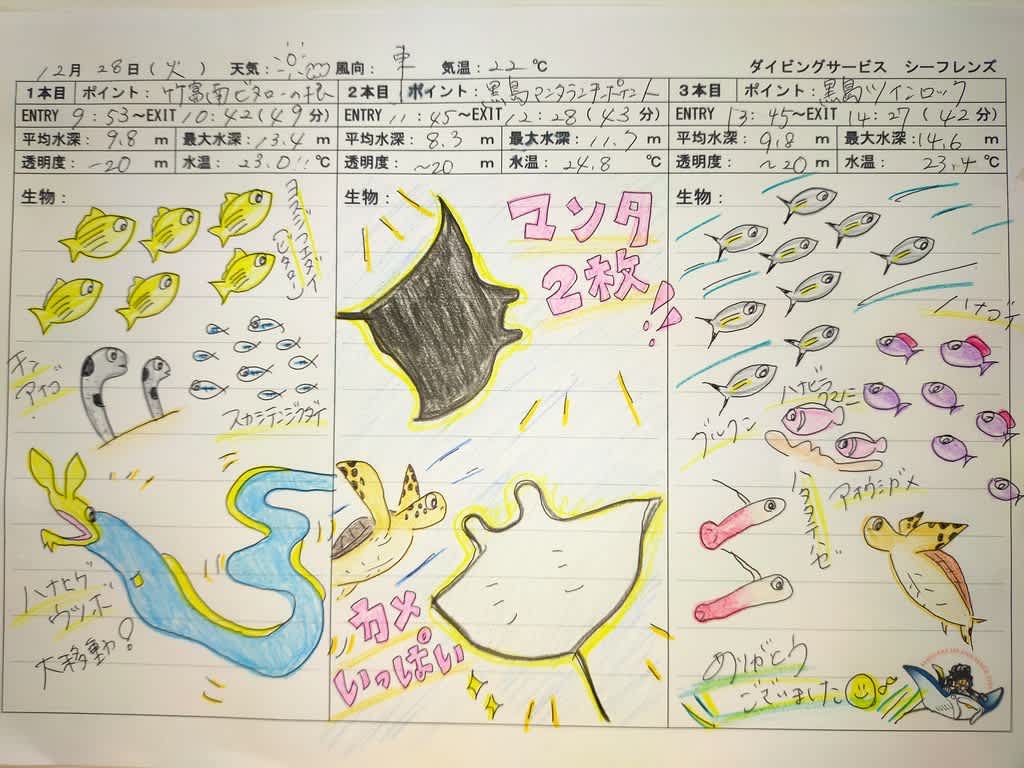 12月 28日(火) 天気: 風向: 東 気温: 22 ℃ ダイビングサービス シーフレンズ
1本目 ポイント: 竹富南ビタローの根
ENTRY 9:53~EXIT 10:42(49分)
平均水深: 9.8 m 最大水深: 13.4 m
透明度: ~20 m 水温: 23.0 ℃
生物:
ヨスジフエダイ
(ビタロー)
チン
アナゴ
スカシテンジクダイ
ハナヒゲ
ウツボ
大移動?
2本目 ポイント: 黒島マンタランチポイント
ENTRY 11:45~EXIT 12:28(43分)
平均水深: 8.3 m 最大水深: 11.7 m
透明度: ~20 m 水温: 24.8 ℃
生物:
マンタ
2枚!!
カメ
いっぱい
3本目 ポイント: 黒島ツインロック
ENTRY 13:45~EXIT 14:27(42分)
平均水深: 9.8 m 最大水深: 14.6 m
透明度: ~20 m 水温: 23.4 ℃
生物:
ハナゴイ
グルクン
ハナビラ
クマノミ
ハタタテハゼ
アオウミガメ
ありがとう
ございました